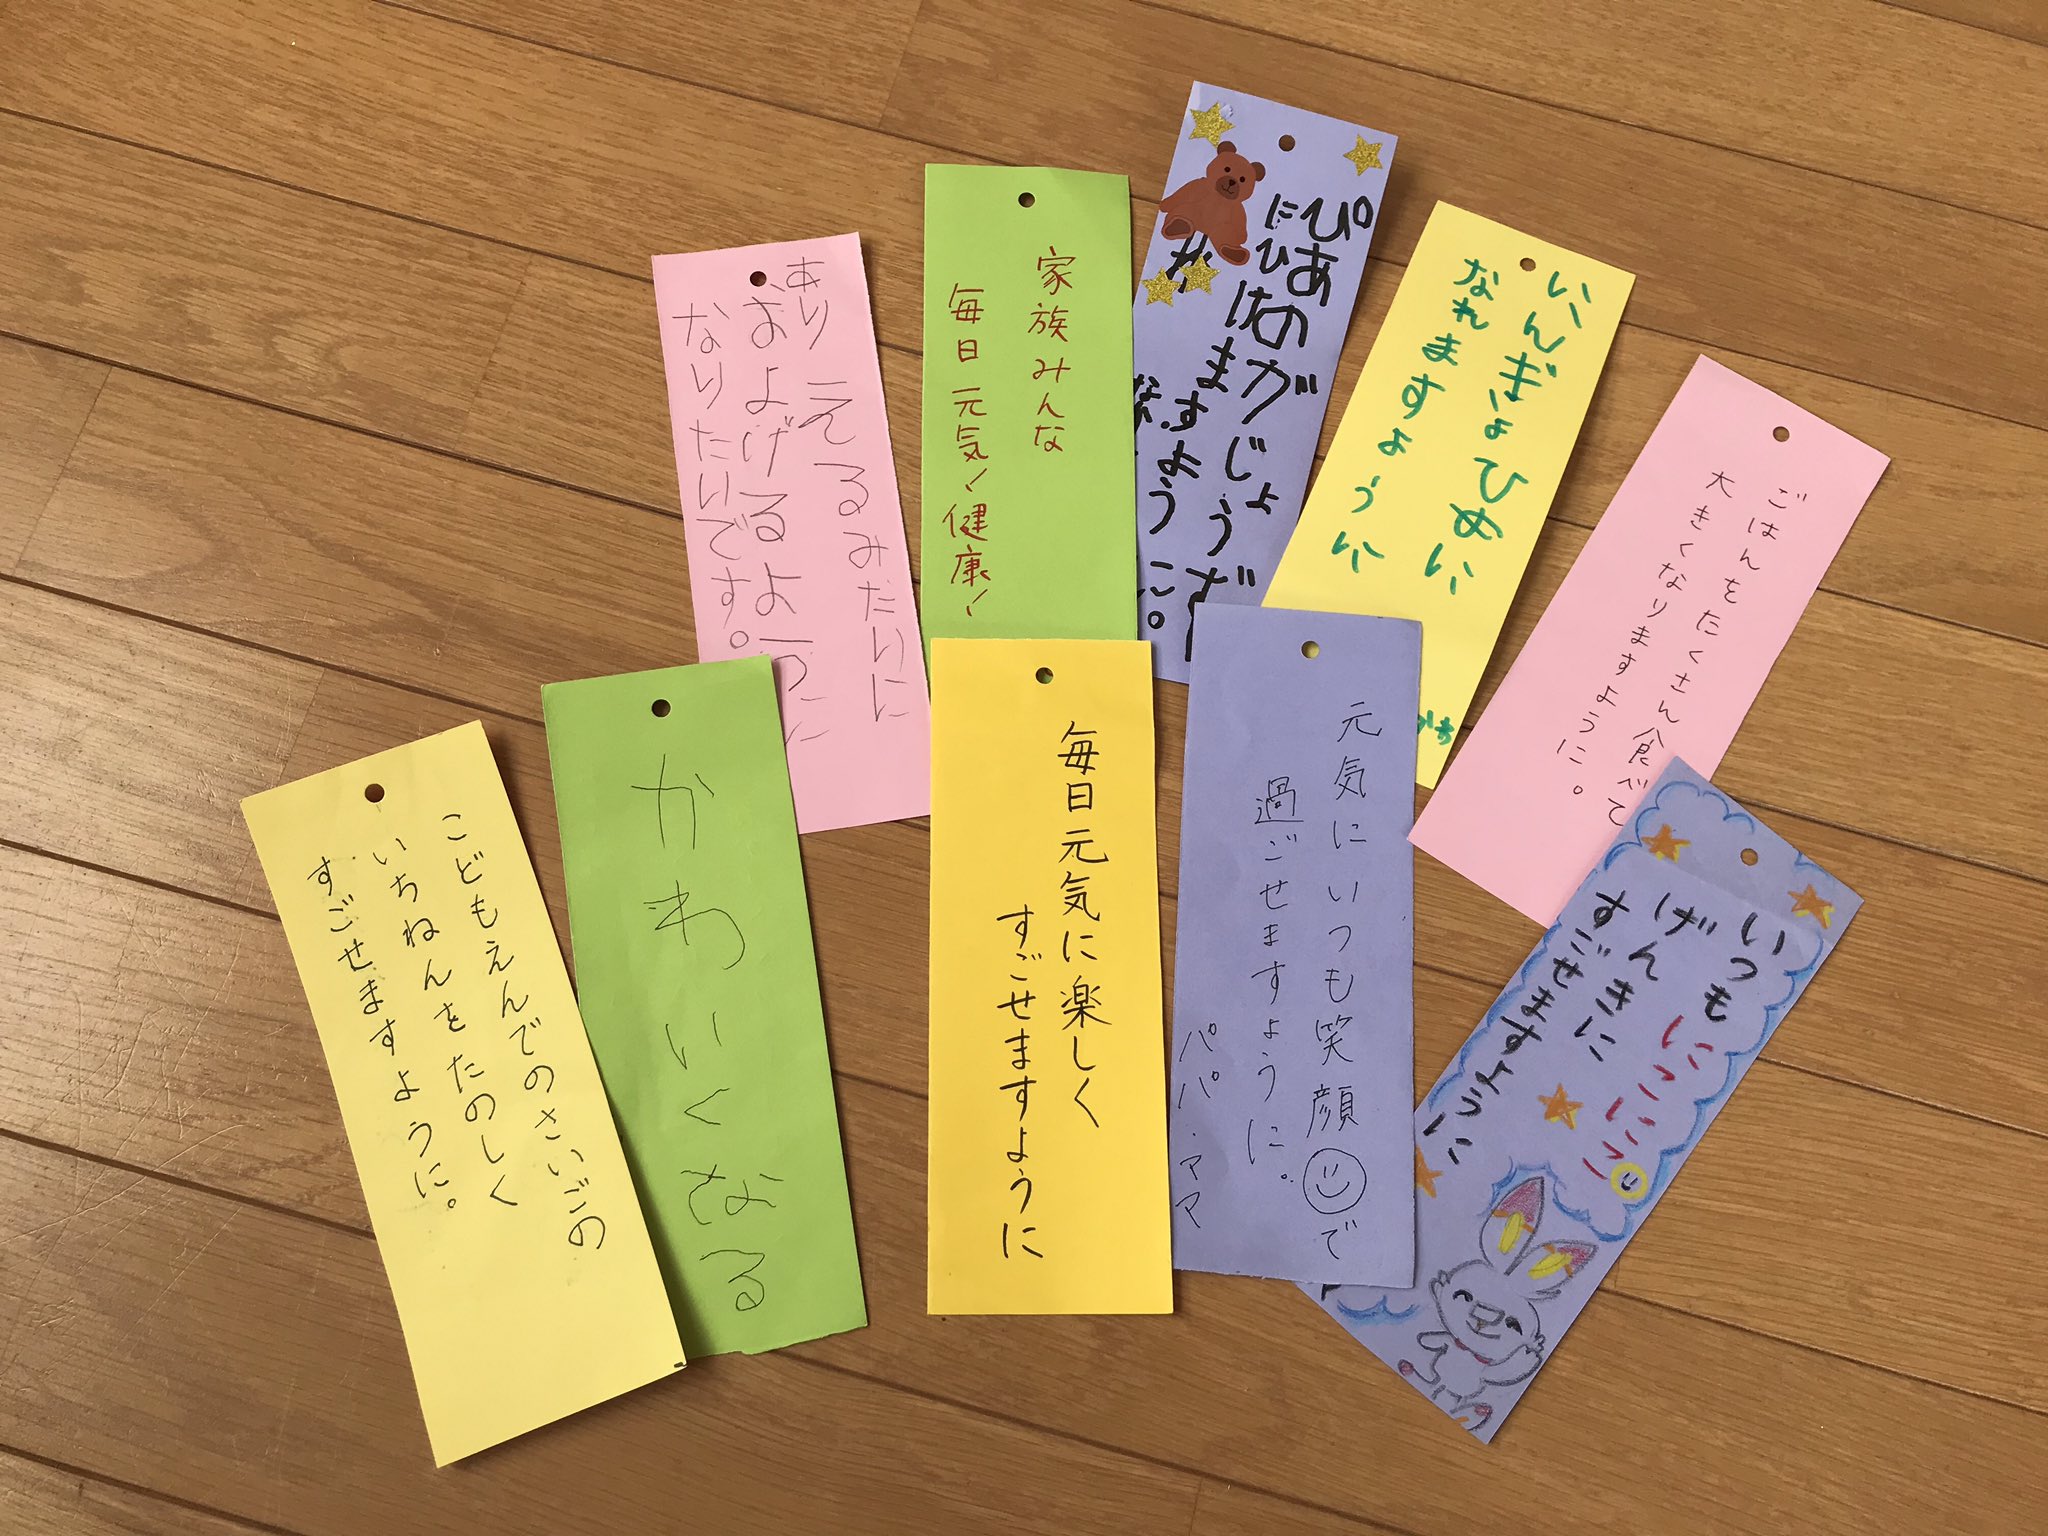 ありえるみたいに
およげるように
なりたいです。
家族みんな
毎日元気!健康!
ぴあのがじょうず
にひけますように。
にんぎょひめに
なれますように
ごはんをたくさん食べて
大きくなりますように。
こどもえんでのさいごの
いちねんをたのしく
すごせますように。
かわいくなる
毎日元気に楽しく
すごせますように
元気にいつも笑顔で
過ごせますように。
パパ・ママ
いつもにこにこ
げんきに
すごせますように